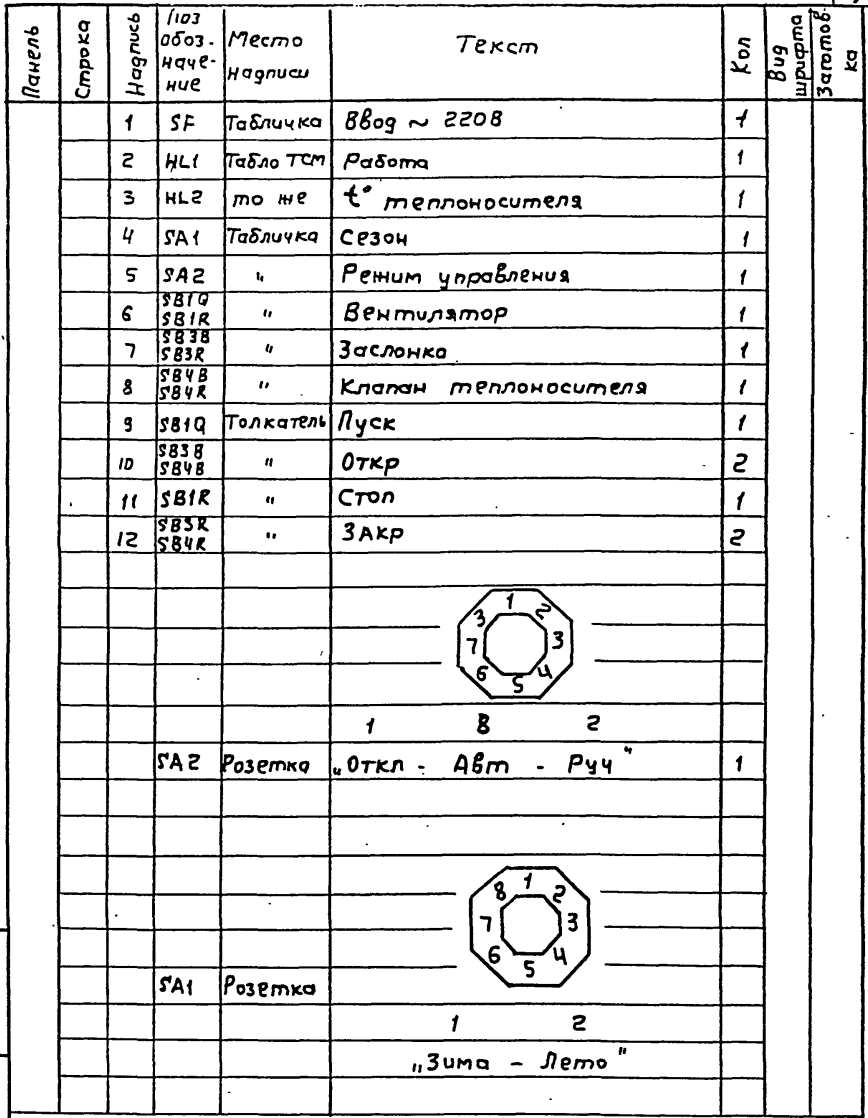 Панель Строка Надпись Поз обоз- наче- ние Место надписи Текст Кол Вид шрифта Заготов- ка
1 SF Табличка Ввод ~ 220В 1
2 HL1 Табло ТСМ Работа 1
3 HL2 то же t° теплоносителя 1
4 SA1 Табличка Сезон 1
5 SA2 " Режим управления 1
6 SB1Q SB1R " Вентилятор 1
7 SB3B SB3R " Заслонка 1
8 SB4B SB4R " Клапан теплоносителя 1
9 SB1Q Толкатель Пуск 1
10 SB3B SB4B " Откр 2
11 SB1R " Стоп 1
12 SB3R SB4R " ЗАкр 2
3 1 2
7 3
6 5 4
1 8 2
SA2 Розетка „Откл - Авт - Руч" 1
8 1 2
7 3
6 5 4
SA1 Розетка
1 2
„Зима - Лето"